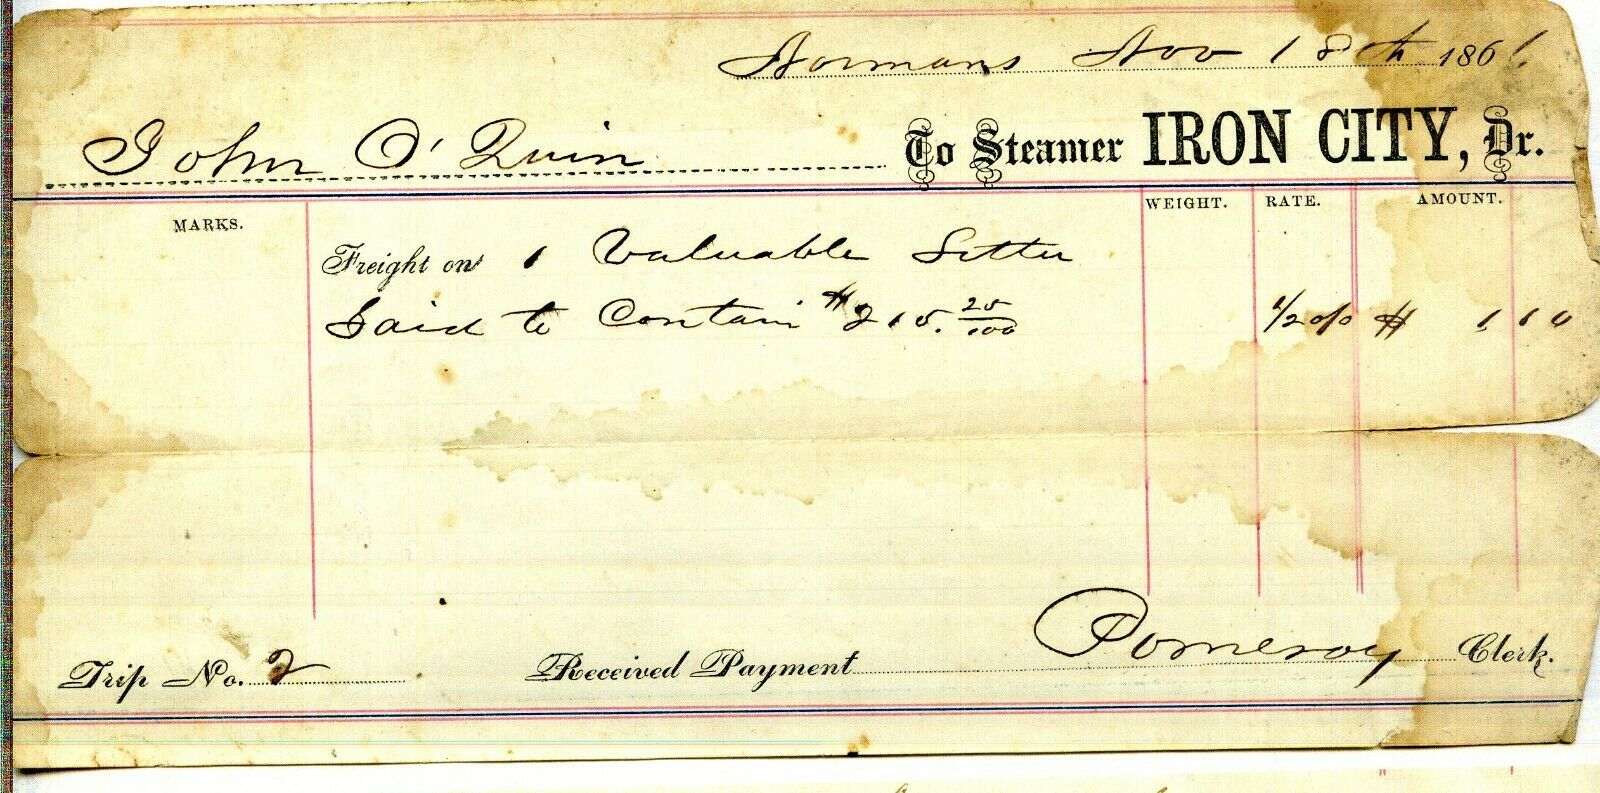 Normans Nov 18th 1866
John O'Quin To Steamer IRON CITY, Dr.
MARKS. WEIGHT. RATE. AMOUNT.
Freight on 1 Valuable Letter
Said to Contain $215.25/100 1/2 o/o $ 1,10
Trip No. 2 Received Payment Pomeroy Clerk.